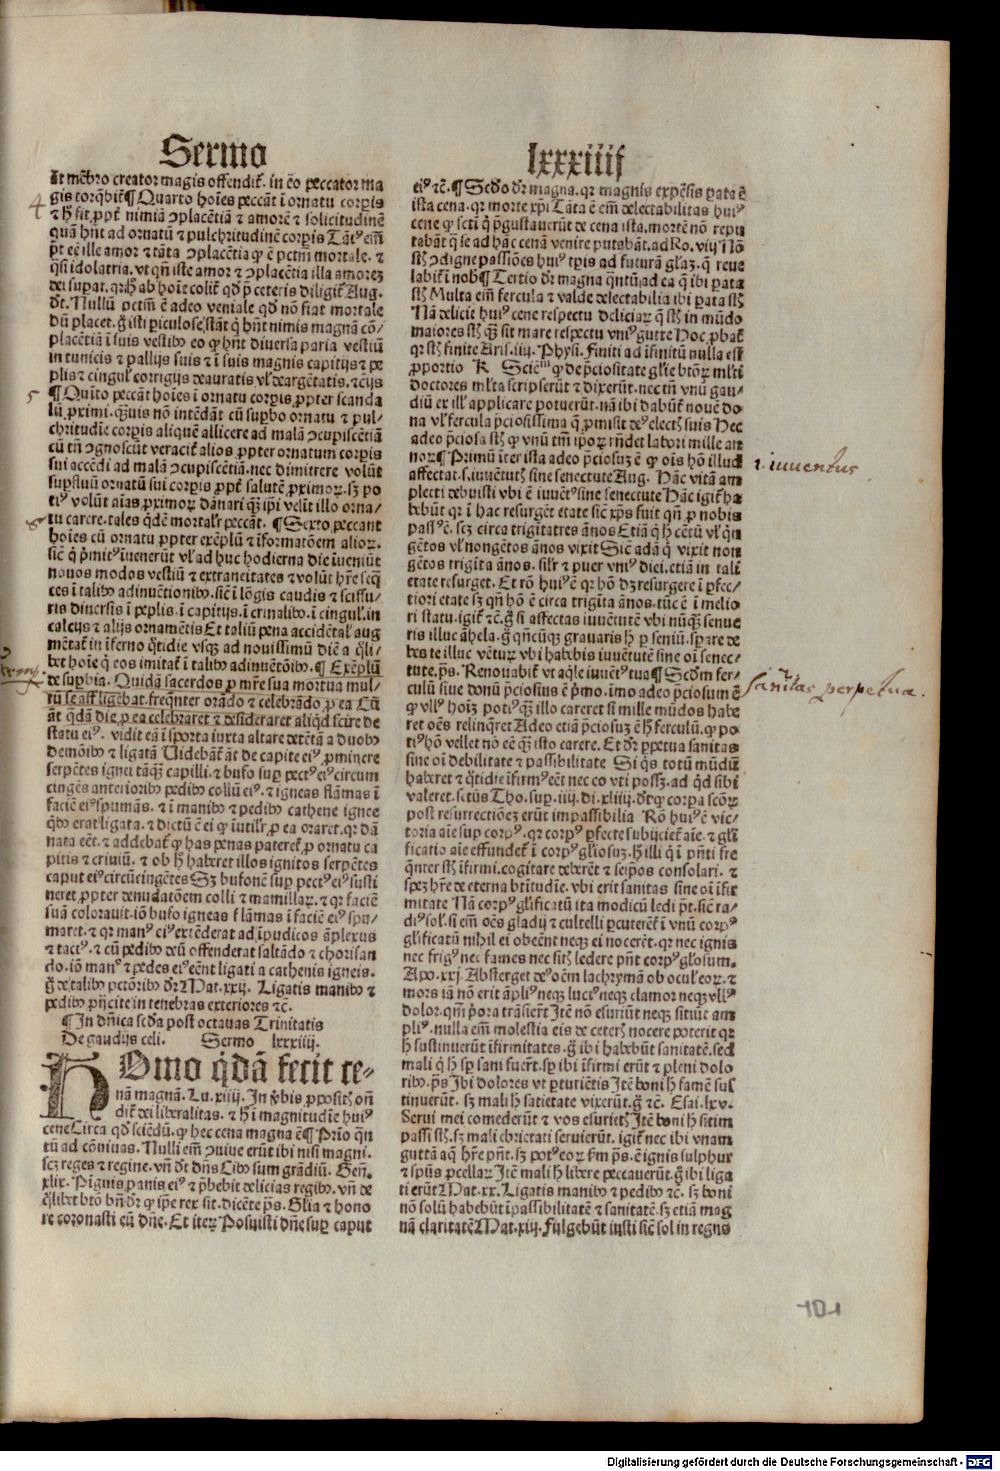 Sermo
lxxxiiij
It mēbro creator magis offendit̄. in eo peccator ma
gis torq̄bit̄ ¶ Quarto hoīes peccāt ī ornatu corpis
ꝫ h̄ fit ꝓpt̄ nimiā ꝯplacētiā ꝫ amorē ꝫ solicitudinē
quā hn̄t ad ornatū ꝫ pulchritudinē corpis
p̄t eē ille amor ꝫ tāta ꝯplacētia ꝙ ē pctm̄ mortale. ꝫ
q̄si idolatria. vt qn̄ iste amor ꝫ ꝯplacētia illa amorē
dei suꝑat. Aug.
dt̄. Nullū pctm̄ ē adeo veniale qd̓ nō fiat mortale
dū placet. ḡ isti ꝑiculose stāt q̄ hn̄t nimis magnā cō/
placētiā ī suis vestibꝰ eo ꝙ hn̄t diuersa paria vestiū
in tunicis ꝫ pallijs suis ꝫ ī suis magnis capitijs ꝫ pe
plis ꝫ cingul̓ corrigijs deauratis vl̓ deargētatis. ꝛcīs
¶ Quīto peccāt hoīes ī ornatu corpis ꝓpter scanda
lū ꝓximi. q̄uis nō intēdāt cū suꝑbo ornatu ꝫ pul/
chritudīe corpis aliquē allicere ad malā ꝯcupiscētiā
cū tn̄ ꝯgnoscūt veracit̄ alios ꝓpter ornatum corpis
sui accēdi ad malā ꝯcupiscētiā. nec dimittere volūt
suꝑfluū ornatū sui corpis ꝓpt̄ salutē ꝓximoꝝ. sꝫ po
tiꝰ volūt aīas ꝓximoꝝ dānari qꝫ ipī velīt illo orna/
tu carere. tales qd̓ē mortalr̄ peccāt. ¶ Sexto peccant
hoīes cū ornatu ꝓpter exēplū ꝫ īformatōem alioꝝ.
sic̄ q̄ p̄mitꝰ īuenerūt vl̓ ad huc hodierna die īueniūt
nouos modos vestiū ꝫ extraneitates ꝫ volūt hr̄e seq̄
ces ī talibꝰ adinuētionibꝰ. sic̄ ī lōgis caudis ꝫ scissu/
ris diuersis ī peplis. ī capitijs. ī crinalibꝰ. ī cingul̓. in
calcijs ꝫ alijs ornamētis Et taliū pena accidētal̓ aug
mētat̄ in īferno q̄tidie vsqꝫ ad nouissimū diē a q̄li/
bet hoīe q̄ eos imitat̄ ī talibꝰ adinuētōibꝰ. ¶ Exēplū
de suꝑbia. Quidā sacerdos ꝓ mr̄e sua mortua mul/
tū se affligebat. freqn̄ter orādo ꝫ celebrādo ꝓ ea Cū
āt qd̓ā die ꝓ ea celebraret ꝫ desideraret aliqd̓ scire de
statu eiꝰ. vidit eā ī sporta iuxta altare detētā a duobꝰ
demōibꝰ ꝫ ligatā Uidebāt̄ āt de capite eiꝰ ꝓminere
serpētes ignei tāqꝫ capilli. ꝫ bufo suꝑ pectꝰ eiꝰ circum
cingēs anterioribꝰ pedibꝰ collū eiꝰ. ꝫ igneas flāmas ī
faciē eiꝰ spumās. ꝫ ī manibꝰ ꝫ pedibꝰ cathene ignee
q̄bꝰ erat ligata. ꝫ dictū ē ei ꝙ īutilr̄ ꝓ ea oraret. qr̄ dā
nata eēt. ꝫ addebat̄ ꝙ has penas pateret̄ ꝓ ornatu ca
pitis ꝫ criniū. ꝫ ob h̄ haberet illos ignitos serpētes
caput eiꝰ circūcingētes Sꝫ bufonē suꝑ pectꝰ eiꝰ susti
neret ꝓpter denudatōem colli ꝫ mamillaꝝ. ꝫ qr̄ faciē
suā colorauit. iō bufo igneas flāmas ī faciē eiꝰ spu/
maret. ꝫ qr̄ manꝰ eiꝰ extēderat ad īpudicos āplexus
ꝫ tactꝰ. ꝫ cū pedibꝰ deū offenderat saltādo ꝫ chorisan
do. iō manꝰ ꝫ pedes eiꝰ eēnt ligati a cathenis igneis.
ḡ de talibꝰ pctōribꝰ dr̄ Mat. xxij. Ligatis manibꝰ ꝫ
pedibꝰ ꝓijcite in tenebras exteriores ꝛc̄.
¶ In dn̄ica scd̓a post octauas Trinitatis
De gaudijs celi. Sermo lxxxiiij.
HOmo qd̓ā fecit ce-
nā magnā. Lu. xiiij. In v̄bis ꝓpositꝭ on̄
dit̄ dei liberalitas. ꝫ h̄ ī magnitudīe huiꝰ
cene Circa qd̓ sciēdū. ꝙ hec cena magna ē ¶ Prīo q̄n
tū ad cōuiuas. Nulli em̄ ꝯuiue erūt ibi nisi magni.
scꝫ reges ꝫ regine. vn̄ dt̄ dn̄s Cibꝰ sum grādiū. Gen̄.
xlix. Pīguis panis eiꝰ ꝫ p̄bebit delicias regibꝰ. vn̄ de
q̄libet btō bn̄ dr̄ ꝙ ip̄e rex sit. dicēte p̄s. Glīa ꝫ hono
re coronasti eū dn̄e. Et iteꝝ Posuisti dn̄e suꝑ caput
eiꝰ ꝛc̄. ¶ Scd̓o dr̄ magna. qr̄ magnis expēsis ꝑata ē
ista cena. qr̄ morte xp̄i Tāta ē em̄ delectabilitas huiꝰ
cene ꝙ scti q̄ p̄gustauerūt de cena ista. mortē nō repu
tabāt q̄ se ad hāc cenā venire putabāt. ad Ro. viij Nō
st̄ ꝯdigne passiōes huiꝰ tꝑis ad futurā gl̓aꝫ. q̄ reue
labit̄ ī nob̓ ¶ Tertio dr̄ magna q̄ntū ad ea q̄ ibi ꝑata
st̄ Multa em̄ fercula ꝫ valde delectabilia ibi ꝑata st̄
Nā delicie huiꝰ cene respectu deliciaꝝ q̄ st̄ in mūdo
maiores st̄ qꝫ sit mare respectu vniꝰ gutte Hoc ꝓbat̄
qr̄ st̄ finite Aris. iij. Physi. Finiti ad īfinitū nulla est
ꝓportio ꝶ Sciēdū ꝙ de p̄ciositate gl̓ie btōꝝ ml̓ti
doctores ml̓ta scripserūt ꝫ dixerūt. nec tn̄ vnū gau/
diū ex ill̓ applicare potuerūt. nā ibi dabūt̄ nouē do
na vl̓ fercula p̄ciosissima q̄ ꝓmisit deꝰ elect̄ suis Hec
adeo p̄ciosa st̄ ꝙ vnū tm̄ ip̄oꝝ rn̄det labori mille an
noꝝ ¶ Primū īter ista adeo p̄ciosuꝫ ē ꝙ oīs hō illud
affectat. s. iuuētutꝭ sine senectute Aug. Hāc vitā am
plecti debuisti vbi ē iuuētꝰ sine senectute Hāc igit̄ ha
bebūt qr̄ ī hac resurgēt etate sic̄ xp̄s fuit qn̄ ꝓ nobis
passꝰ ē. scꝫ circa trigītatres ānos Etiā q̄ h̄ cētū vl̓ q̄n
gētos vl̓ nongētos ānos vixit Sic̄ adā q̄ vixit non
gētos trigīta ānos. silr̄ ꝫ puer vniꝰ diei. etiā in tali
etate resurget. Et rō huiꝰ ē qr̄ hō dꝫ resurgere ī ꝑfec/
tiori etate sꝫ qn̄ hō ē circa trigīta ānos. tūc ē ī melio
ri statu. igit̄ ꝛc̄. ḡ si affectas iuuētutē vbi nūqꝫ senue
ris illuc āhela. ḡ qn̄cūqꝫ grauaris h̄ ꝑ seniū. sperare de
bes te illuc vētuꝝ vbi habebis iuuētutē sine oī senec/
tute. p̄s. Renouabit̄ vt aq̄le iuuētꝰ tua ¶ Scd̓m fer/
culū siue donū p̄ciosius ē p̄mo. īmo adeo p̄ciosum ē
ꝙ vllꝰ hoīꝫ potiꝰ qꝫ illo careret si mille mūdos habe
ret oēs relinq̄ret Adeo etiā p̄ciosuꝫ ē h̄ ferculū. ꝙ po
tiꝰ hō vellet nō eē qꝫ isto carere. Et dr̄ ꝑpetua sanitas
sine oī debilitate ꝫ passibilitate Si q̄s totū mūdum
haberet ꝫ q̄tidie īfirmꝰ eēt nec eo vti possꝫ. ad qd̓ sibi
valeret. sctūs Tho. suꝑ. iiij. di. xliiij. dt̄ ꝙ corpa scōꝝ
post resurrectiōeꝫ erūt impassibilia Rō huiꝰ ē vic/
toria aīe suꝑ corpꝰ. qr̄ corpꝰ ꝑfecte subijciet̄ aīe. ꝫ gl̓i
ficatio aīe effundet̄ ī corpꝰ gl̓iosuꝫ. h̄ illi q̄ ī p̄nti fre
q̄nter st̄ īfirmi. cogitare deberēt ꝫ seipos consolari. ꝫ
speꝫ hr̄e de eterna btītudīe. vbi erit sanitas sine oī īfir
mitate Nā corpꝰ gl̓ificatū ita modicū ledi p̄t. sic̄ ra/
diꝰ sol̓. si em̄ oēs gladij ꝫ cultelli ꝑcuterēt̄ ī vnū corpꝰ
gl̓ificatū nihil ei obeēnt neqꝫ ei nocerēt. qr̄ nec ignis
nec frigꝰ nec fames nec sitꝭ ledere pn̄t corpꝰ gl̓osum.
Apo. xxj. Absterget deꝰ oēm lachrymā ob ocul̓ eoꝝ. ꝫ
mors iā nō erit āpliꝰ neqꝫ luctꝰ neqꝫ clamor neqꝫ vllꝰ
dolor. qm̄ p̄ora trāsier̄t Itē nō esuriūt neqꝫ sitiūt am
pliꝰ. nulla em̄ molestia eis de ceterꝭ nocere poterit qr̄
h̄ sustinuerūt īfirmitates. ḡ ibi habebūt sanitatē. sed
mali q̄ h̄ sꝑ sani fuer̄t. sꝑ ibi īfirmi erūt ꝫ pleni dolo
ribꝰ. p̄s Ibi dolores vt ꝑturiētis Itē boni h̄ famē sus
tinuerūt. sꝫ mali h̄ satietate vixerūt. ḡ ꝛc̄. Esai. lxv.
Serui mei comederūt ꝫ vos esurietꝭ Itē boni h̄ sitim
passi st̄. sꝫ mali ebrietati seruierūt. igit̄ nec ibi vnam
guttā aq̄ hr̄e pn̄t. sꝫ potꝰ eoꝝ sm̄ p̄s. ē ignis sulphur
ꝫ spūs ꝓcellaꝝ Itē mali h̄ libere peccauerūt. ḡ ibi liga
ti erūt Mat. xx. Ligatis manibꝰ ꝫ pedibꝰ ꝛc̄. sꝫ boni
nō solū habebūt īpassibilitatē ꝫ sanitatē. sꝫ etiā mag
nā claritatē Mat. xiij. Fulgebūt iusti sic̄ sol in regno
4
5
6
1. iuuentus
2. sanitas perpetua.
101
Digitalisierung gefördert durch die Deutsche Forschungsgemeinschaft - DFG